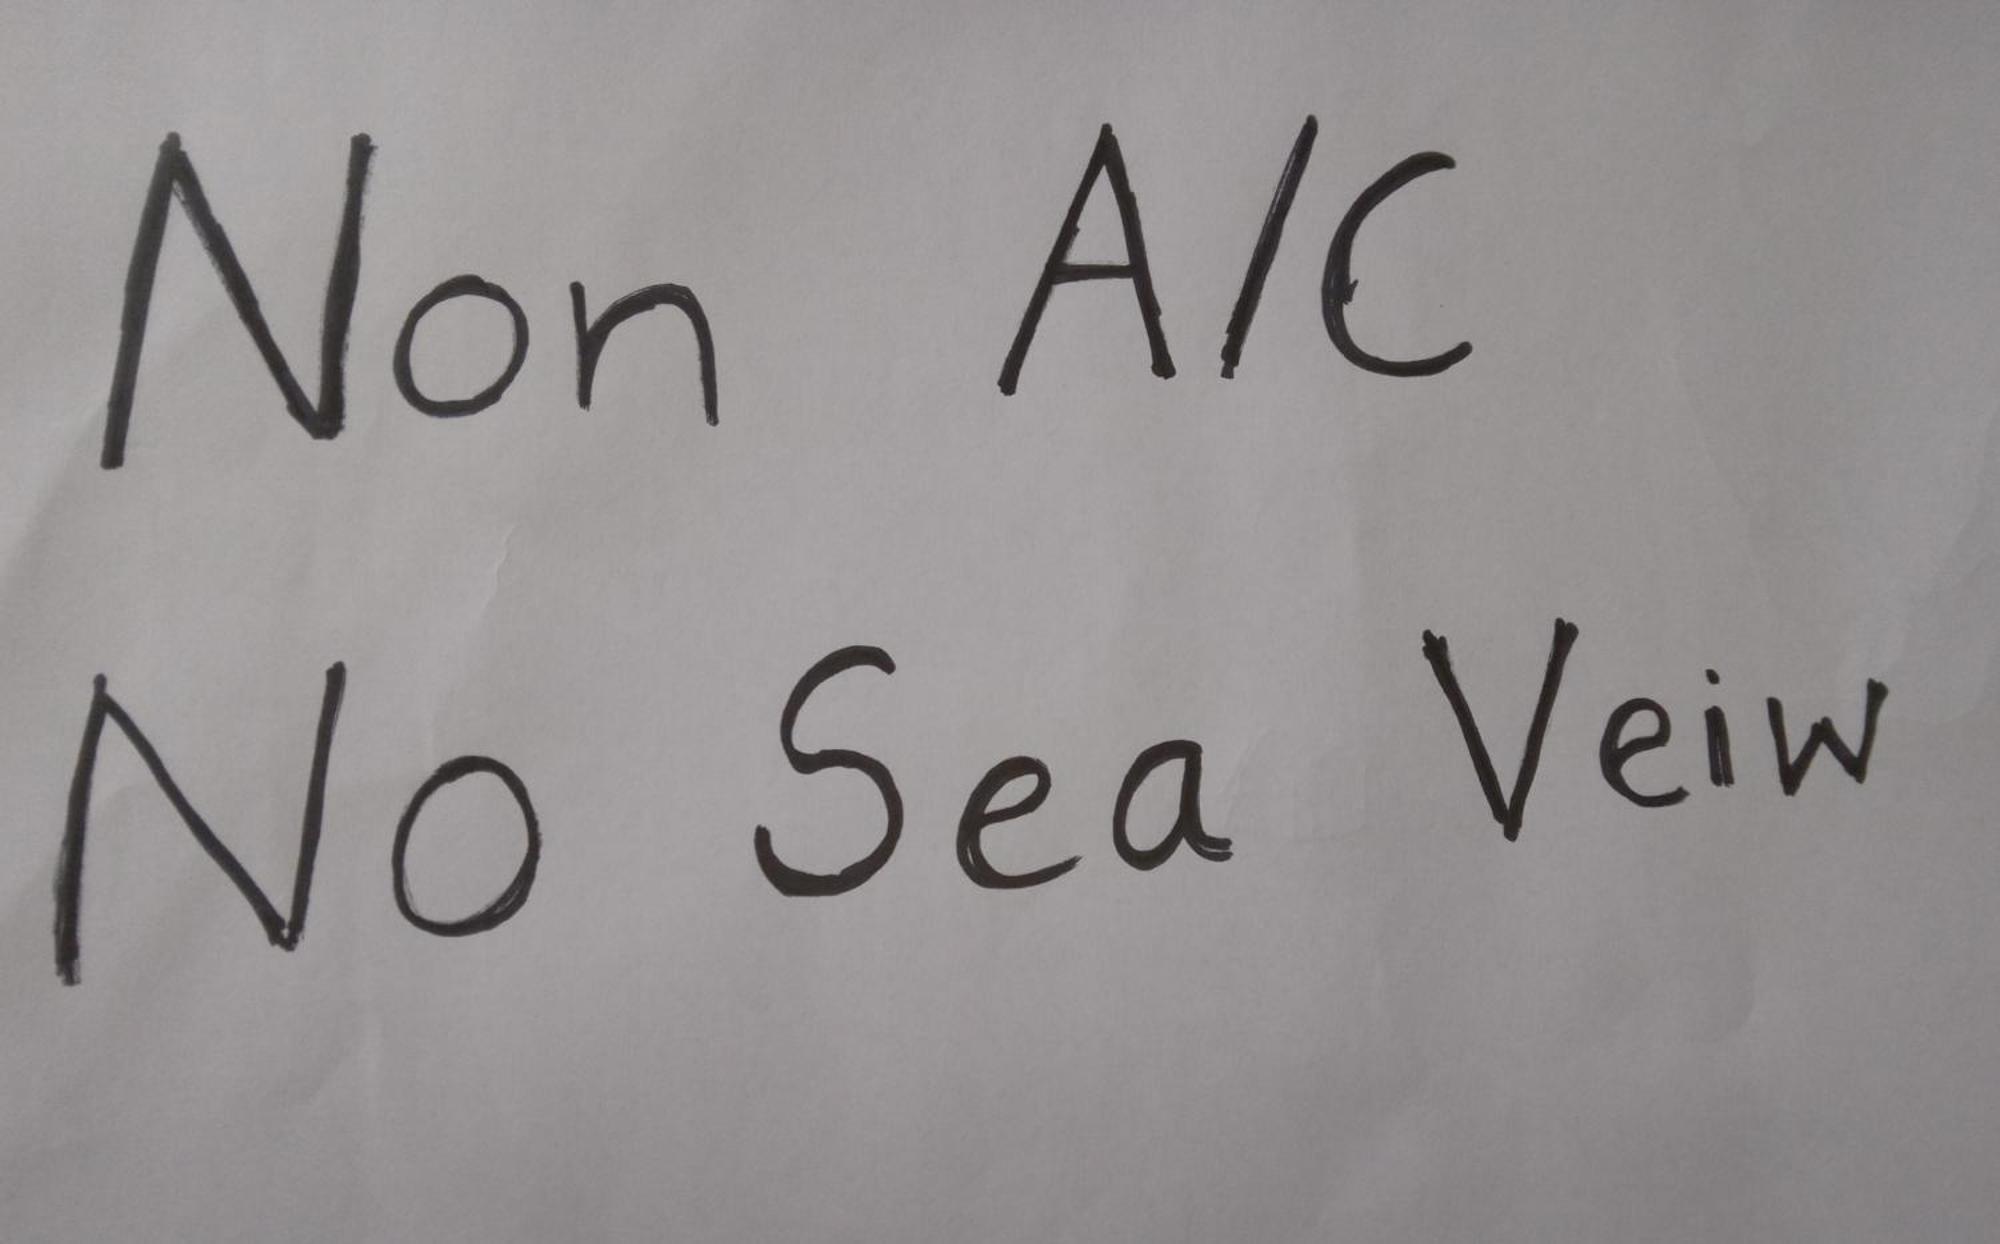 Non A/C
No Sea Veiw